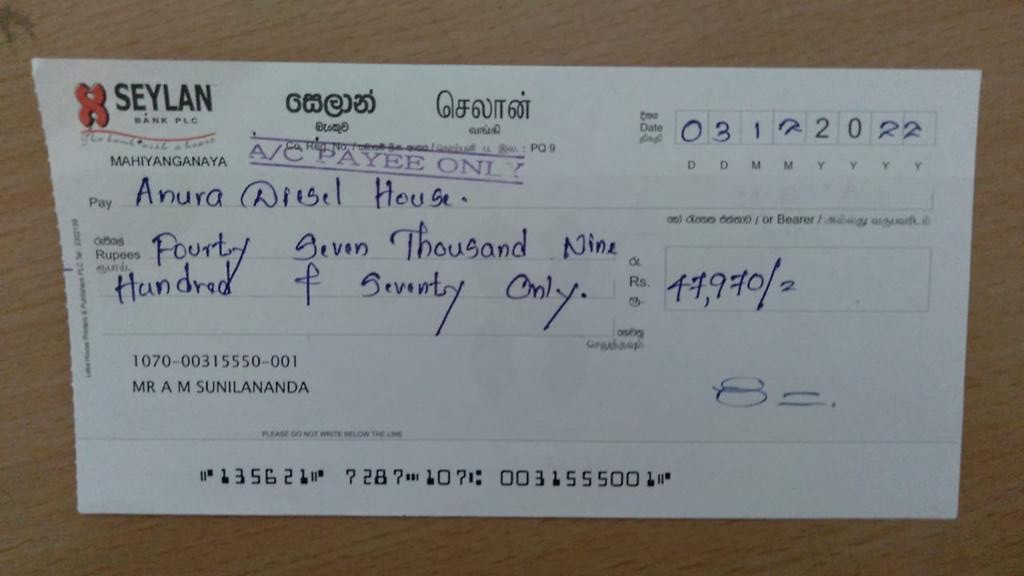 SEYLAN
BANK PLC
The bank with a heart
MAHIYANGANAYA
සෙලාන්
බැංකුව
செலான்
வங்கி
Co. Reg. No. : PQ 9
A/C PAYEE ONLY
දිනය
Date
திகதி
0 3 1 2 2 0 2 2
D D M M Y Y Y Y
Pay Anura Diesel House.
හෝ රැගෙන එන්නාට / or Bearer / அல்லது வருபவரிடம்
රුපියල්
Rupees
ரூபாய்
Fourty Seven Thousand Nine
Hundred & Seventy Only.
රු.
Rs.
ரூ.
47,970/=
ගෙවනු
செலுத்தவும்
1070-00315550-001
MR A M SUNILANANDA
PLEASE DO NOT WRITE BELOW THE LINE
⑈135621⑈ 7287⑉107⑆ 0031555001⑈